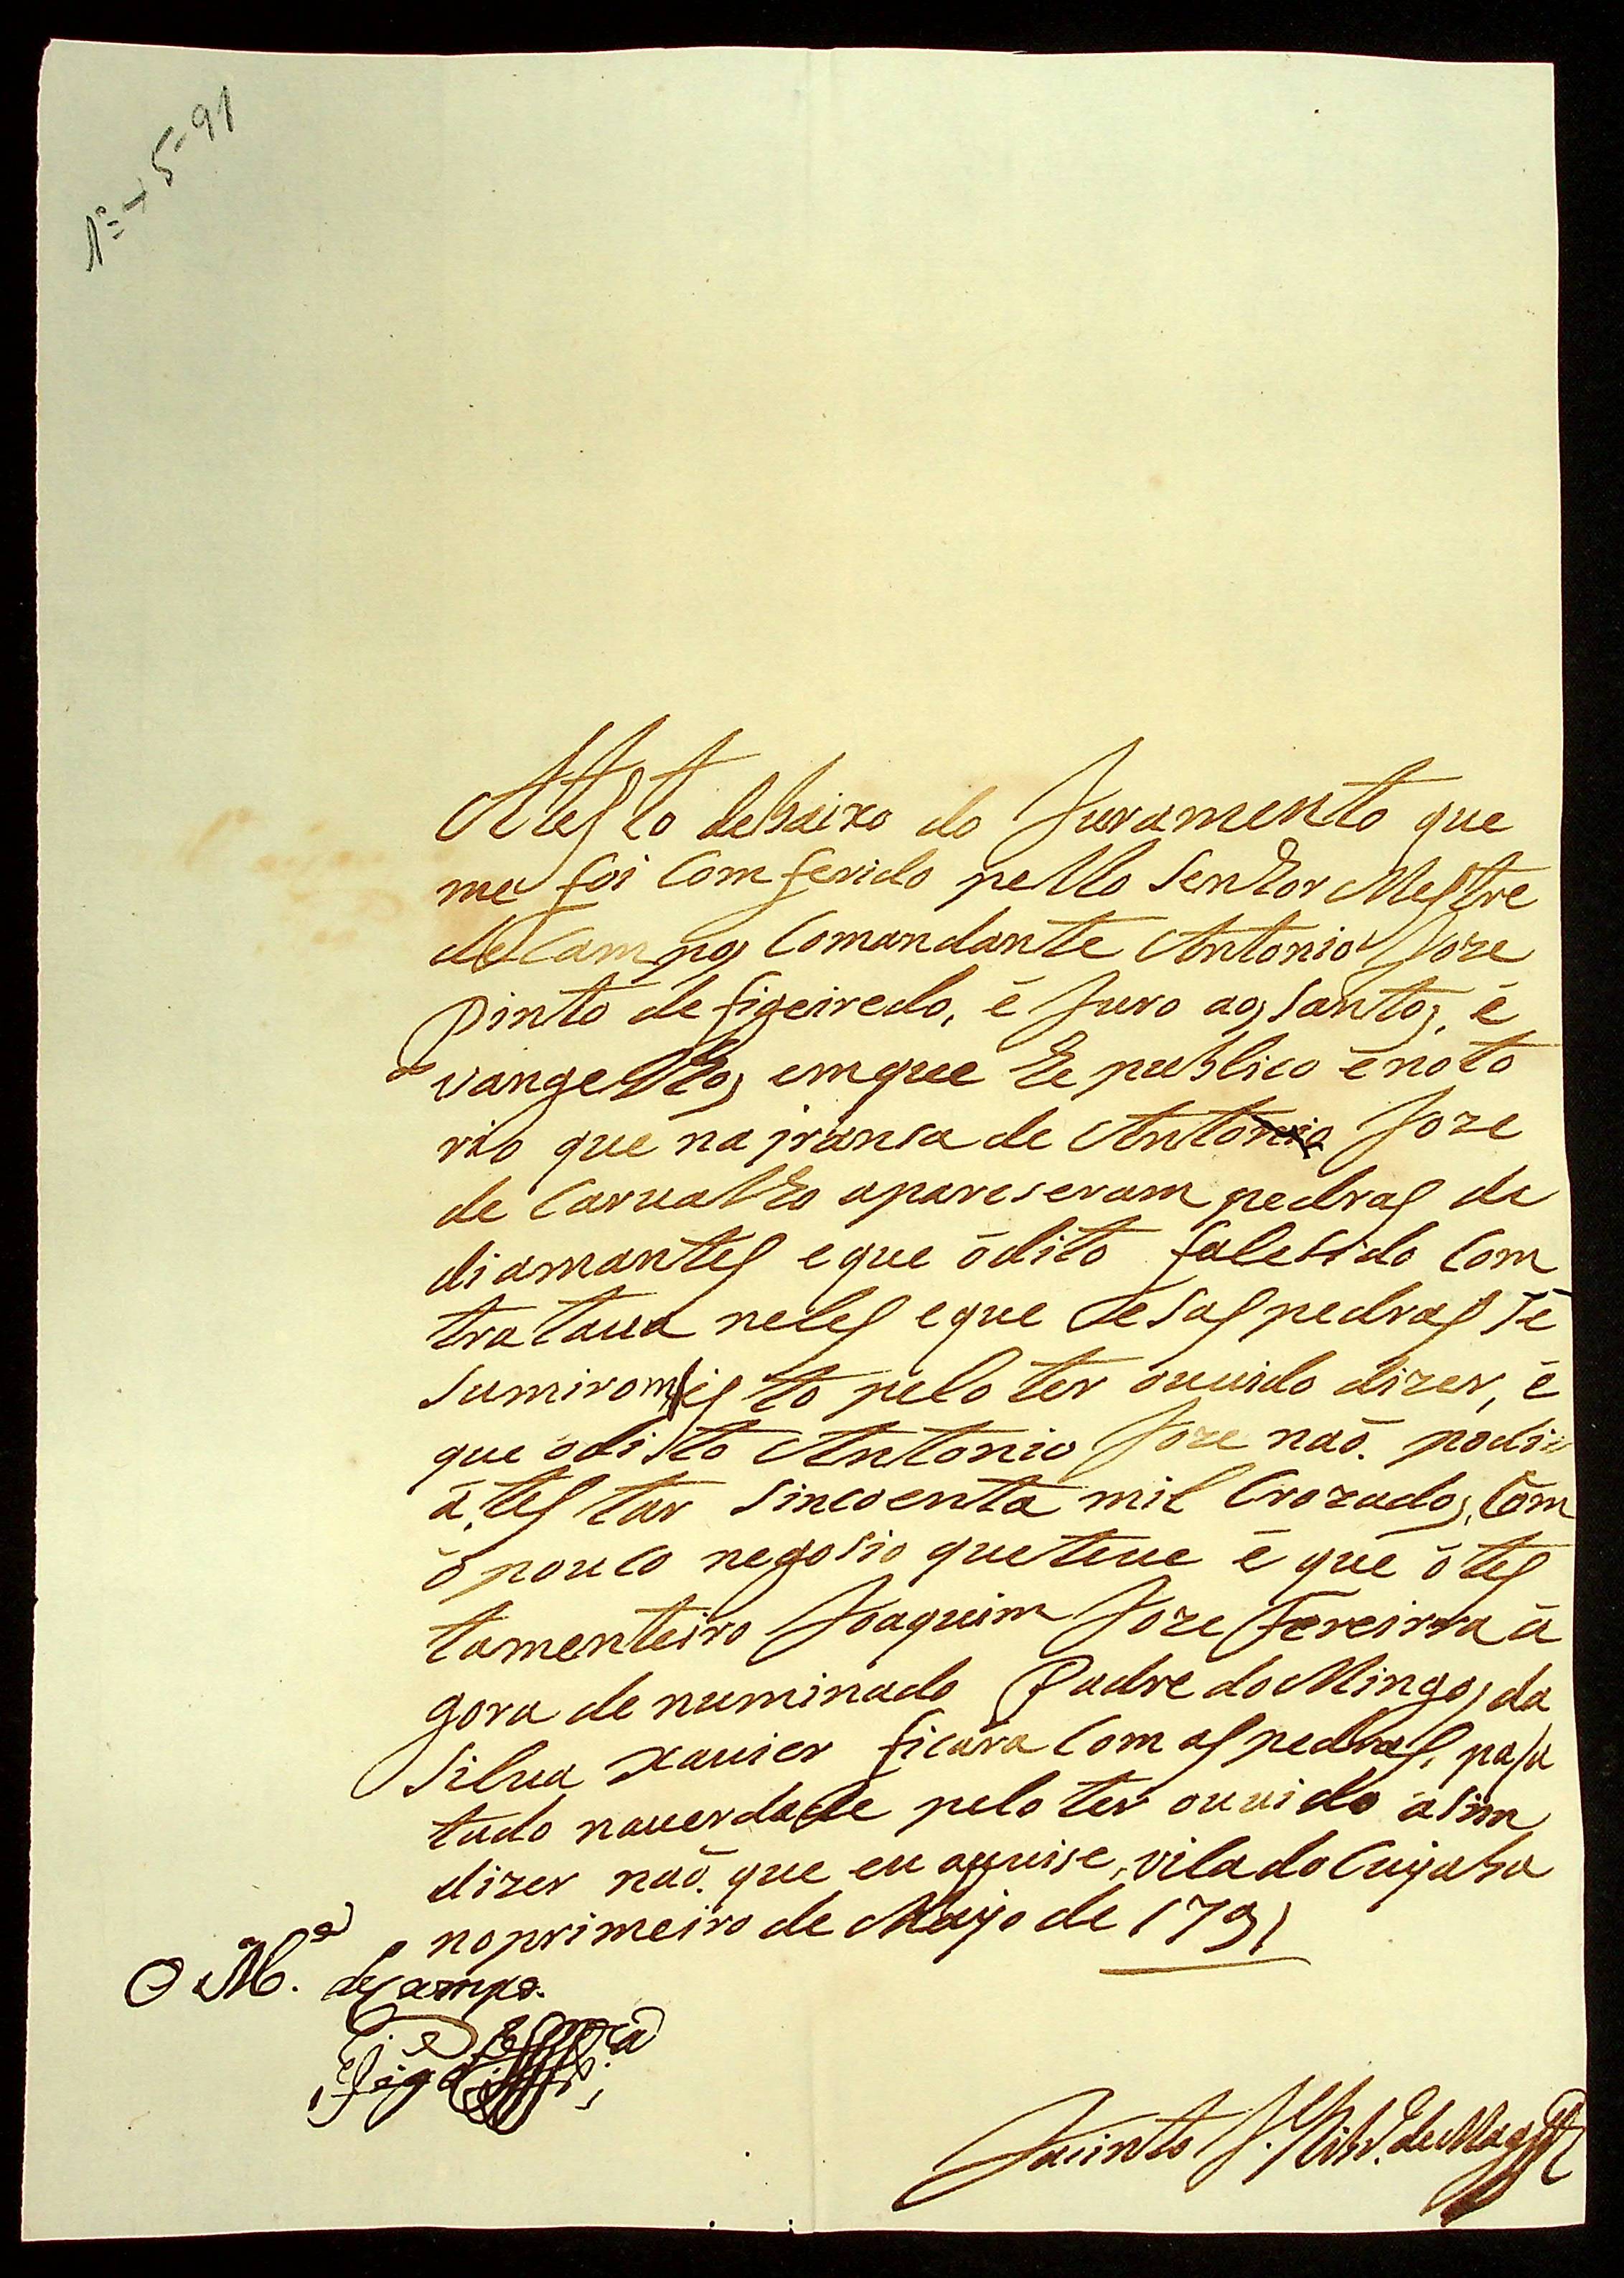 1º - 5-91
Atesto debaixo do Juramento que
me foi Comferido pello senhor Mestre
de Campo, Comandante Antonio Joze
Pinto de figeiredo, é Juro aos santos, é
vangelhos, emque he publico enoto
rio que na
de Antonio Joze
de Carvalho apareseram pedras de
diamantes eque ódito falesido Com
tratava neles eque desas pedras sé
sumirom isto pelo ter óuvido dizer, é
que ódisto Antonio Joze naõ podi
á, testar sincoenta mil Crozados, Com
ó pouco negosio queteve é que ó tes
tamenteiro Joaquim Joze Fereirra á
gora denuminado Padre do Mingos da
Silva xavier ficára Com as pedras, pasa
tudo naverdade pelo ter ouvido asim
dizer naõ que eu
vila do Cuyaba
noprimeiro de Mayo de 1791
O M.e de Campo
Jacinto J. Rib.º de Mag